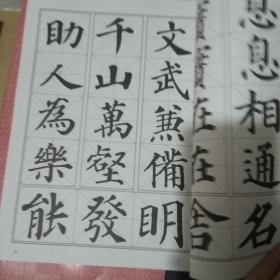 息息相通名
在在舍
文武兼備明
千山萬壑發
助人為樂能